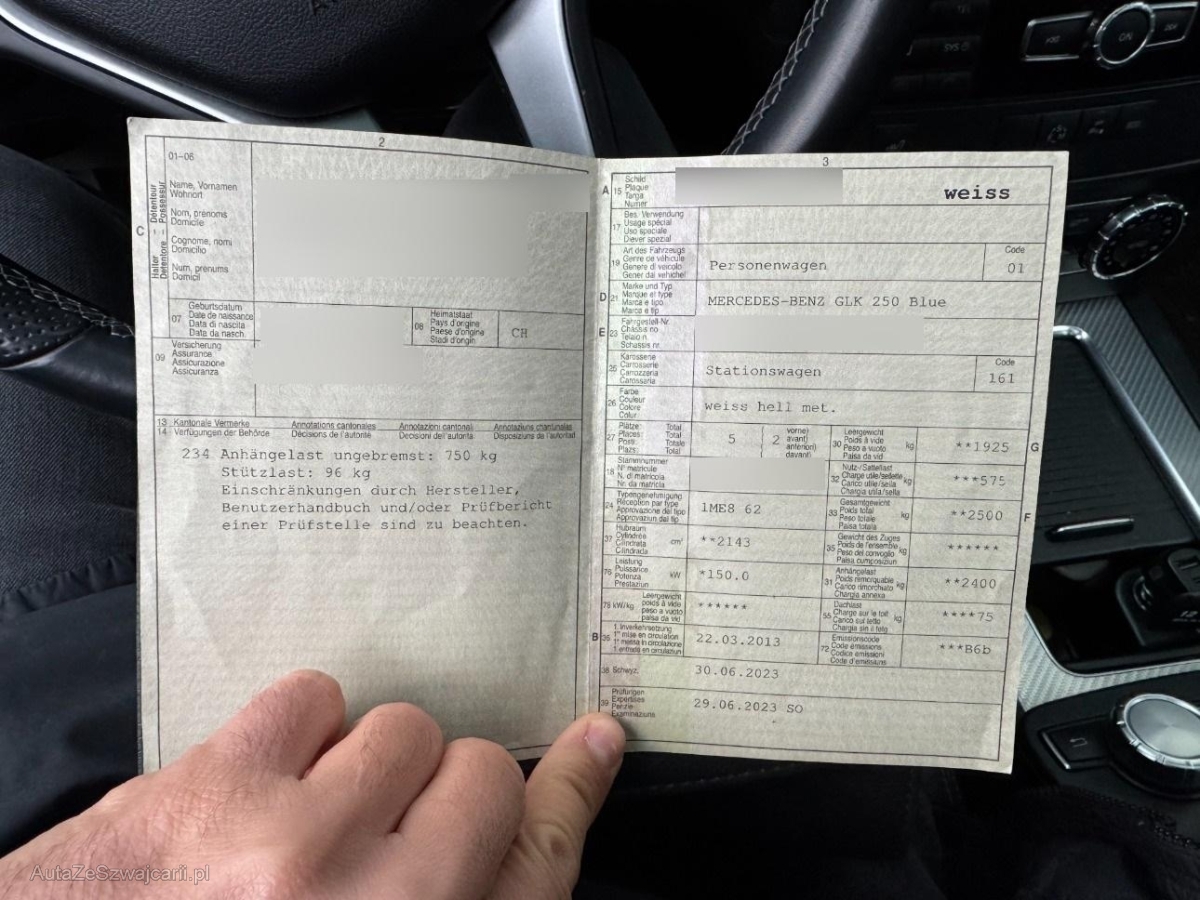 2
01-06
Halter – Détenteur
Detentore – Possessur
C
Name, Vornamen
Wohnort
Nom, prénoms
Domicile
Cognome, nomi
Domicilio
Num, prenums
Domicil
07
Geburtsdatum
Date de naissance
Data di nascita
Data da nasch.
08
Heimatstaat
Pays d'origine
Paese d'origine
Stadi d'origin
CH
09
Versicherung
Assurance
Assicurazione
Assicuranza
13 Kantonale Vermerke Annotations cantonales Annotazioni cantonali Annotaziuns chantunalas
14 Verfügungen der Behörde Décisions de l'autorité Decisioni dell'autorità Disposiziuns da l'autoritad
234 Anhängelast ungebremst: 750 kg
Stützlast: 96 kg
Einschränkungen durch Hersteller,
Benutzerhandbuch und/oder Prüfbericht
einer Prüfstelle sind zu beachten.
3
A 15
Schild
Plaque
Targa
Numer
weiss
17
Bes. Verwendung
Usage spécial
Uso speciale
Diever spezial
19
Art des Fahrzeugs
Genre de véhicule
Genere di veicolo
Gener dal vehichel
Personenwagen
Code
01
D 21
Marke und Typ
Marque et type
Marca e tipo
Marca e tip
MERCEDES-BENZ GLK 250 Blue
E 23
Fahrgestell-Nr.
Châssis no
Telaio n.
Schassis nr.
25
Karosserie
Carrosserie
Carrozzeria
Carossaria
Stationswagen
Code
161
26
Farbe
Couleur
Colore
Colur
weiss hell met.
27
Plätze Total
Places Total
Posti Totale
Plazs Total
5
2
vorne)
avant)
anteriori)
davant)
30
Leergewicht
Poids à vide
Peso a vuoto
Paisa da vid
kg
**1925
G
18
Stammnummer
N° matricule
N. di matricola
Nr. da matricla
32
Nutz-/Sattellast
Charge utile/sellette
Carico utile/sella
Chargia utila/sella
kg
***575
24
Typengenehmigung
Réception par type
Approvazione del tipo
Approvaziun dal tip
1ME8 62
33
Gesamtgewicht
Poids total
Peso totale
Paisa totala
kg
**2500
F
37
Hubraum
Cylindrée
Cilindrata
Cilindrada
cm³
**2143
35
Gewicht des Zuges
Poids de l'ensemble
Peso del convoglio
Paisa cumposiziun
kg
******
76
Leistung
Puissance
Potenza
Prestaziun
kW
*150.0
31
Anhängelast
Poids remorquable
Carico rimorchiato
Chargia annexa
kg
**2400
78 kW/kg
Leergewicht
poids à vide
peso a vuoto
paisa da vid
******
55
Dachlast
Charge sur le toit
Carico sul tetto
Chargia sin il tetg
kg
****75
B 36
1. Inverkehrsetzung
1re mise en circulation
1a messa in circolazione
1. entrada en circulaziun
22.03.2013
72
Emissionscode
Code émissions
Codice emissioni
Code d'emissiuns
***B6b
38 Schwyz,
30.06.2023
39
Prüfungen
Expertises
Perizie
Examinaziuns
29.06.2023 SO
AutaZeSzwajcarii.pl